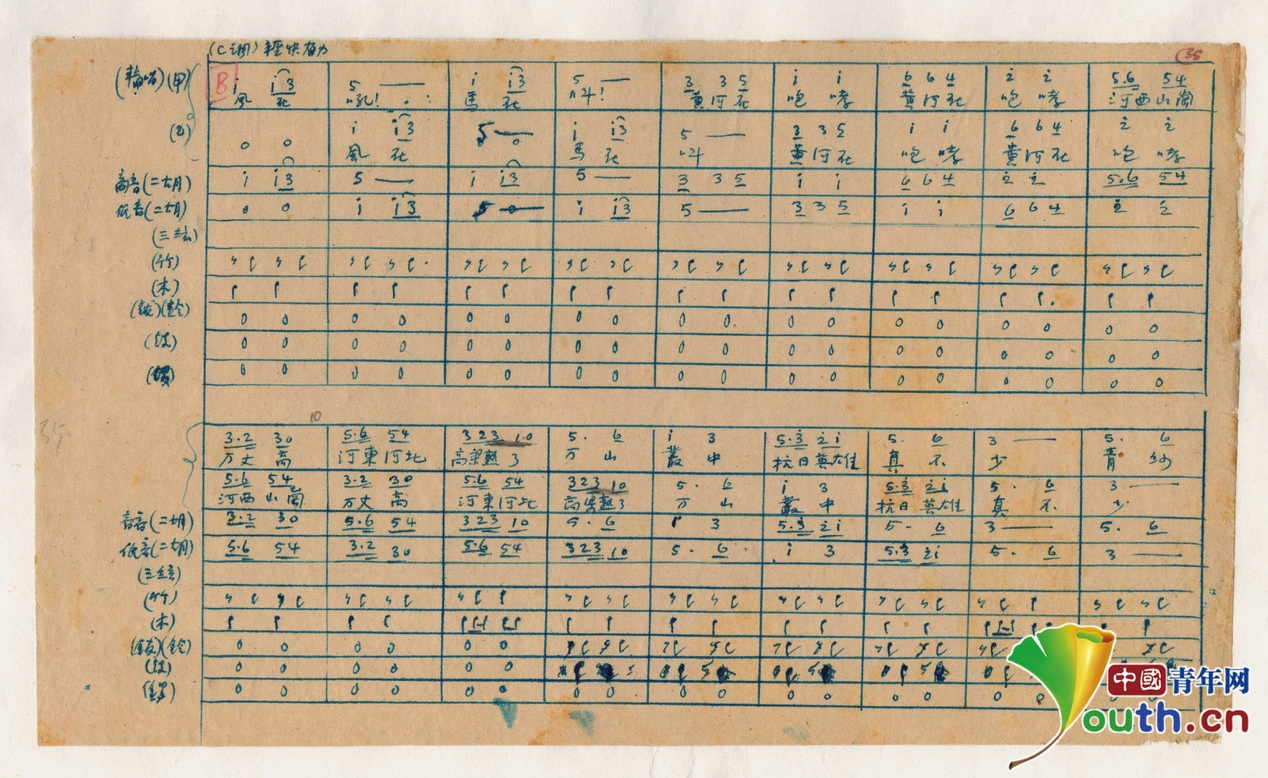 (C調) 輕快有力
35
(輪唱)(甲) B i i3 5 — i i3 5 — 3 3 5 i i 6 6 4 2 2 5.6 54
風 在 吼! 馬 在 叫! 黃河在 咆哮 黃河在 咆哮 河西山崗
(乙) 0 0 i i3 5 — i i3 5 — 3 3 5 i i 6 6 4 2 2
風 在 馬 在 叫 黃河在 咆哮 黃河在 咆哮
高音(二胡) i i3 5 — i i3 5 — 3 3 5 i i 6 6 4 2 2 5.6 54
低音(二胡) 0 0 i i3 5 — i i3 5 — 3 3 5 i i 6 6 4 2 2
(三弦)
(竹)
(木)
(鈸)(鈴) 0 0 0 0 0 0 0 0 0 0 0 0 0 0 0 0 0 0
(鼓) 0 0 0 0 0 0 0 0 0 0 0 0 0 0 0 0 0 0
(鑼) 0 0 0 0 0 0 0 0 0 0 0 0 0 0 0 0 0 0
10
35
3.2 30 5.6 54 323 10 5. 6 i 3 5.3 2i 5. 6 3 — 5. 6
万丈 高 河東河北 高粱熟了 万 山 叢 中 抗日英雄 真 不 少 青 紗
5.6 54 3.2 30 5.6 54 323 10 5. 6 i 3 5.3 2i 5. 6 3 —
河西山崗 万丈 高 河東河北 高粱熟了 万 山 叢 中 抗日英雄 真 不 少
高音(二胡) 3.2 30 5.6 54 323 10 5. 6 i 3 5.3 2i 5. 6 3 — 5. 6
低音(二胡) 5.6 54 3.2 30 5.6 54 323 10 5. 6 i 3 5.3 2i 5. 6 3 —
(三弦)
(竹)
(木)
(鈸)(鈴) 0 0 0 0 0 0
(鼓) 0 0 0 0 0 0
(鑼) 0 0 0 0 0 0 0 0 0 0 0 0 0 0
中國青年网
Youth.cn